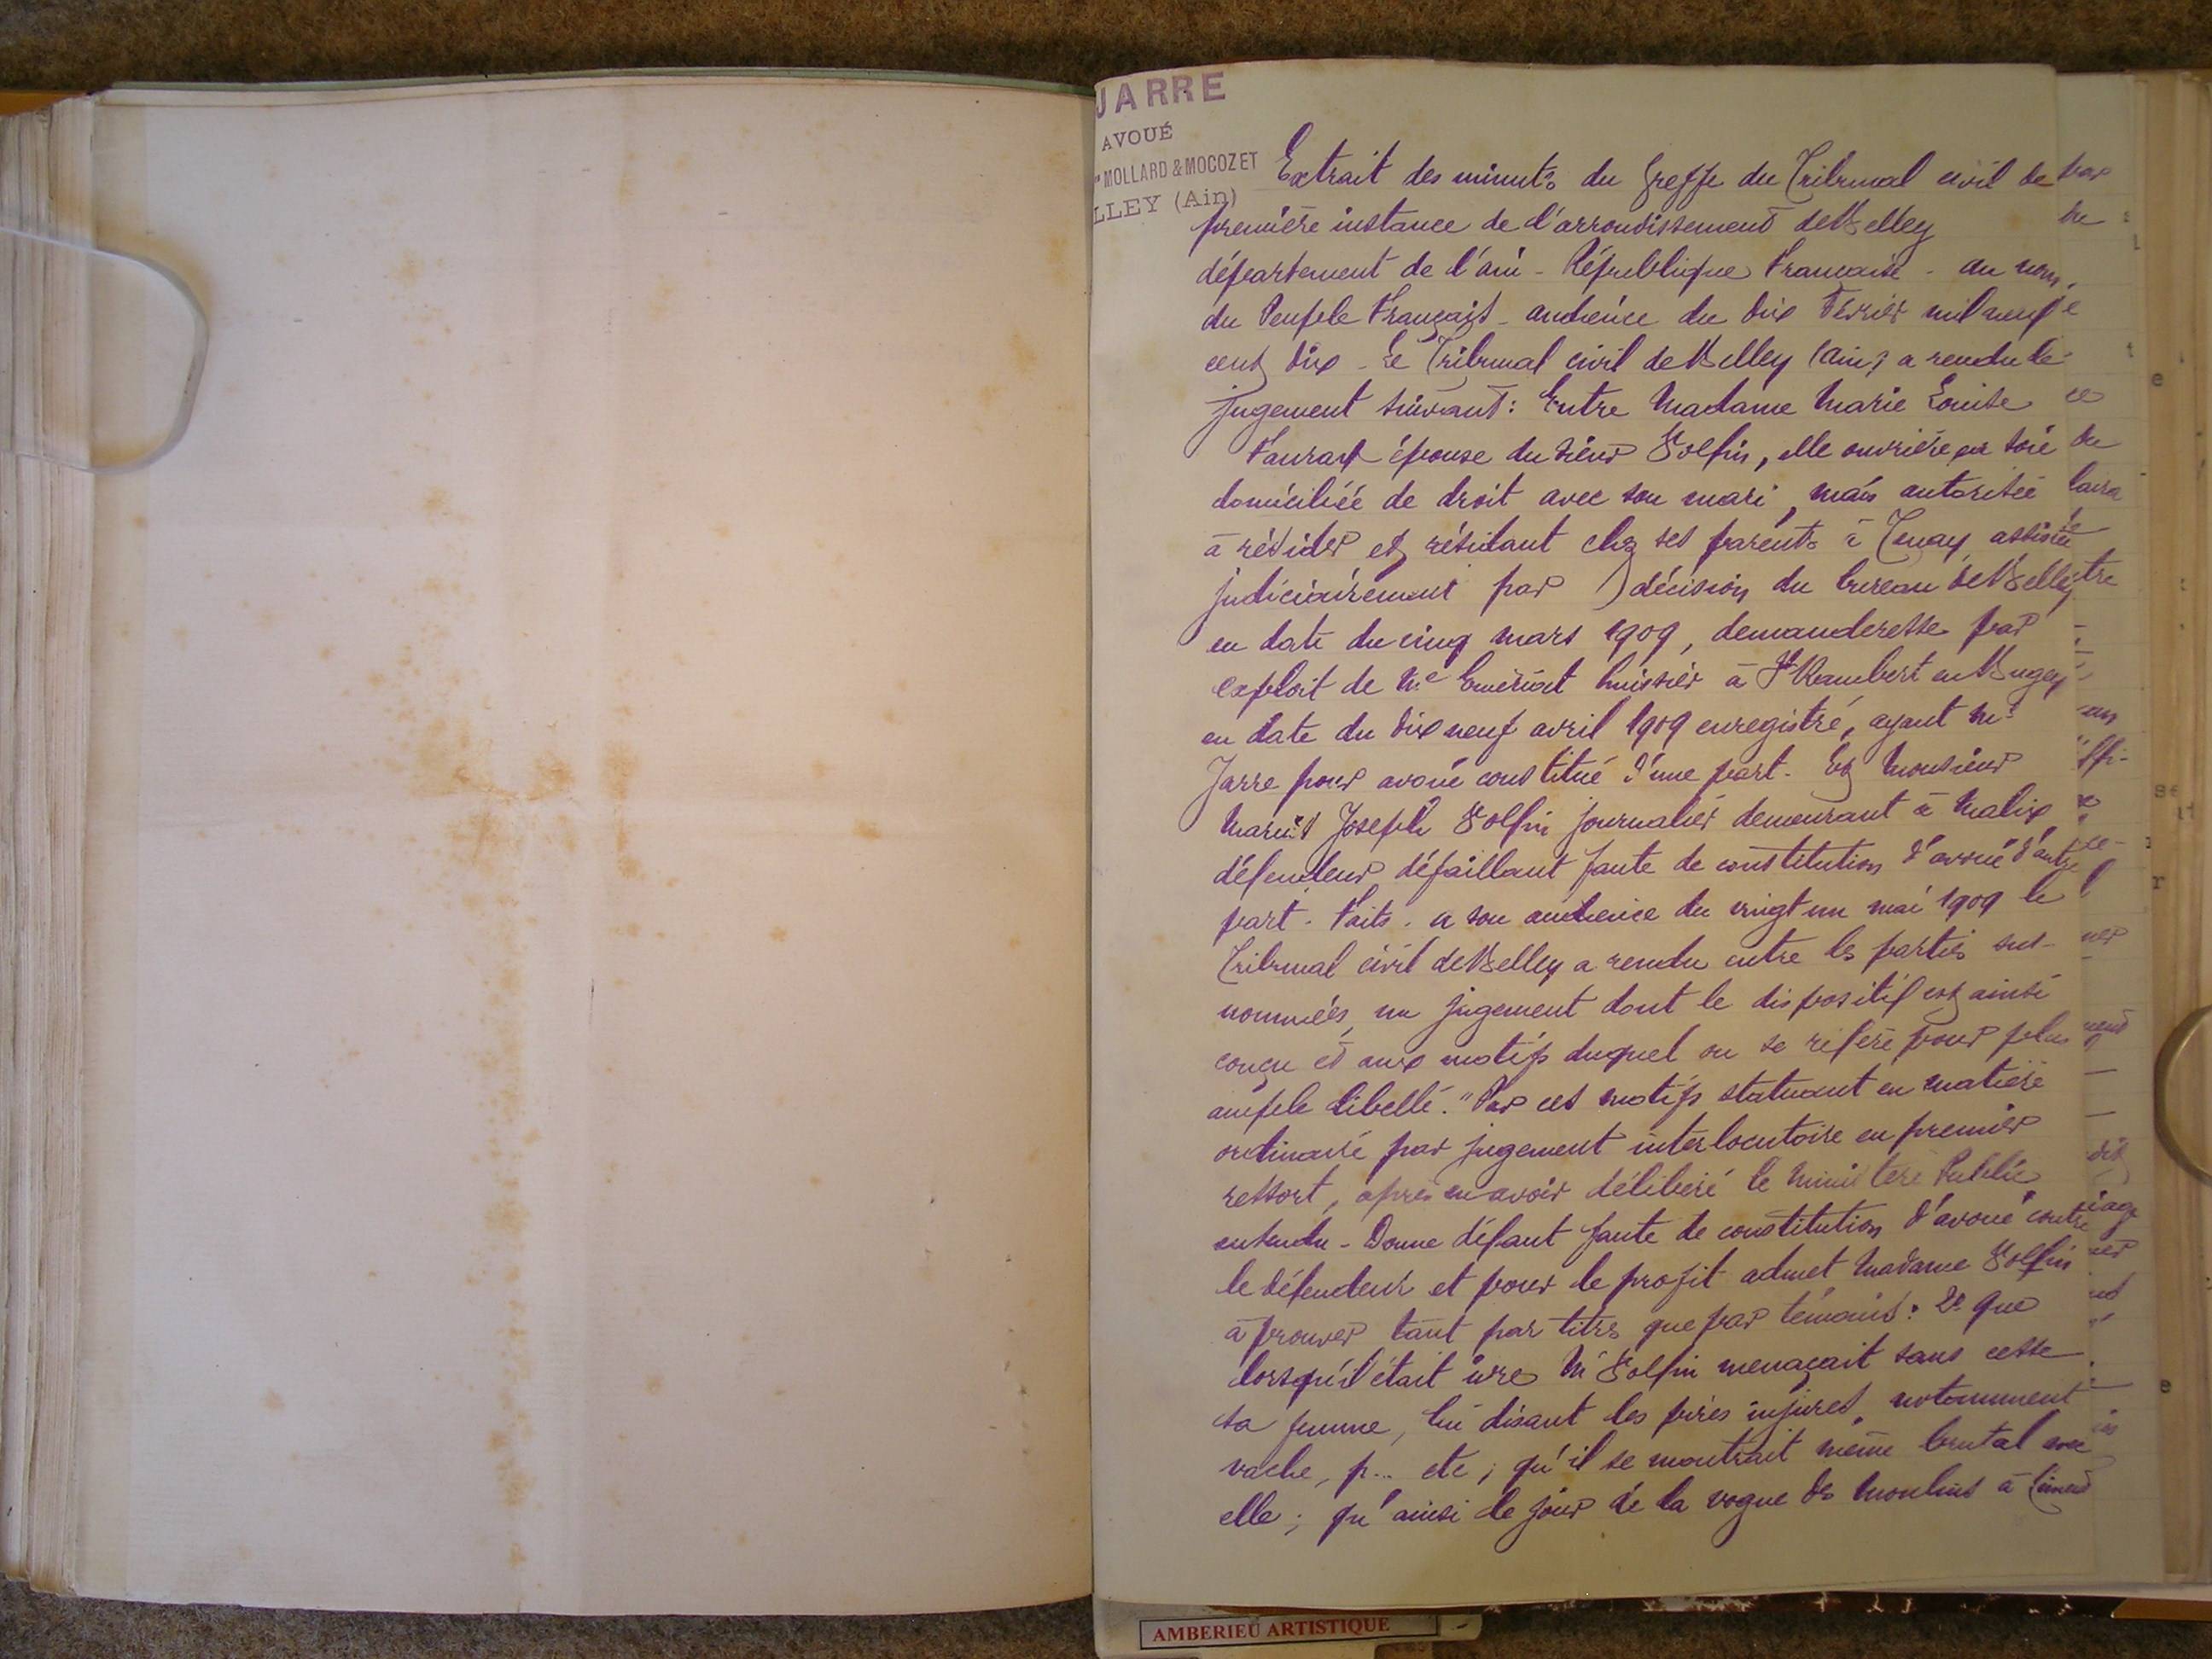 JARRE
AVOUÉ
MOLLARD & MOCOZET
LLEY (Ain)
Extrait des minutes du Greffe du Tribunal civil de
première instance de l'arrondissement de Belley
département de l'ain - République Française - au nom
du Peuple Français - audience du dix Février mil neuf
cent dix - Le Tribunal civil de Belley (Ain) a rendu le
jugement suivant : Entre Madame Marie Louise
épouse du sieur Volfin, elle ouvrière en soie
domiciliée de droit avec son mari, mais autorisée
à résider et résidant chez ses parents à Tenay, assistée
judiciairement par décision du bureau de Belley
en date du cinq mars 1909, demanderesse par
exploit de Me huissier à St Rambert en Bugey
en date du dix neuf avril 1909 enregistré, ayant Me
Jarre pour avoué constitué d'une part. Et Monsieur
Marius Joseph Volfin journalier demeurant à Malix
défendeur défaillant faute de constitution d'avoué d'autre
part. Faits. a son audience du vingt un mai 1909 le
Tribunal civil de Belley a rendu entre les parties sus-
nommées, un jugement dont le dispositif est ainsi
conçu et aux motifs duquel on se réfère pour plus
ample libellé. "Par ces motifs statuant en matière
ordinaire par jugement interlocutoire en premier
ressort, après en avoir délibéré le Ministère Public
entendu - Donne défaut faute de constitution d'avoué contre
le défendeur et pour le profit admet Madame Volfin
à prouver tant par titres que par témoins : que
lorsqu'il était ivre Mr Volfin menaçait sans cesse
sa femme, lui disant les pires injures, notamment
vache, p... etc ; qu'il se montrait même brutal avec
elle ; qu'ainsi le jour de la vogue des Moulins à
AMBERIEU ARTISTIQUE